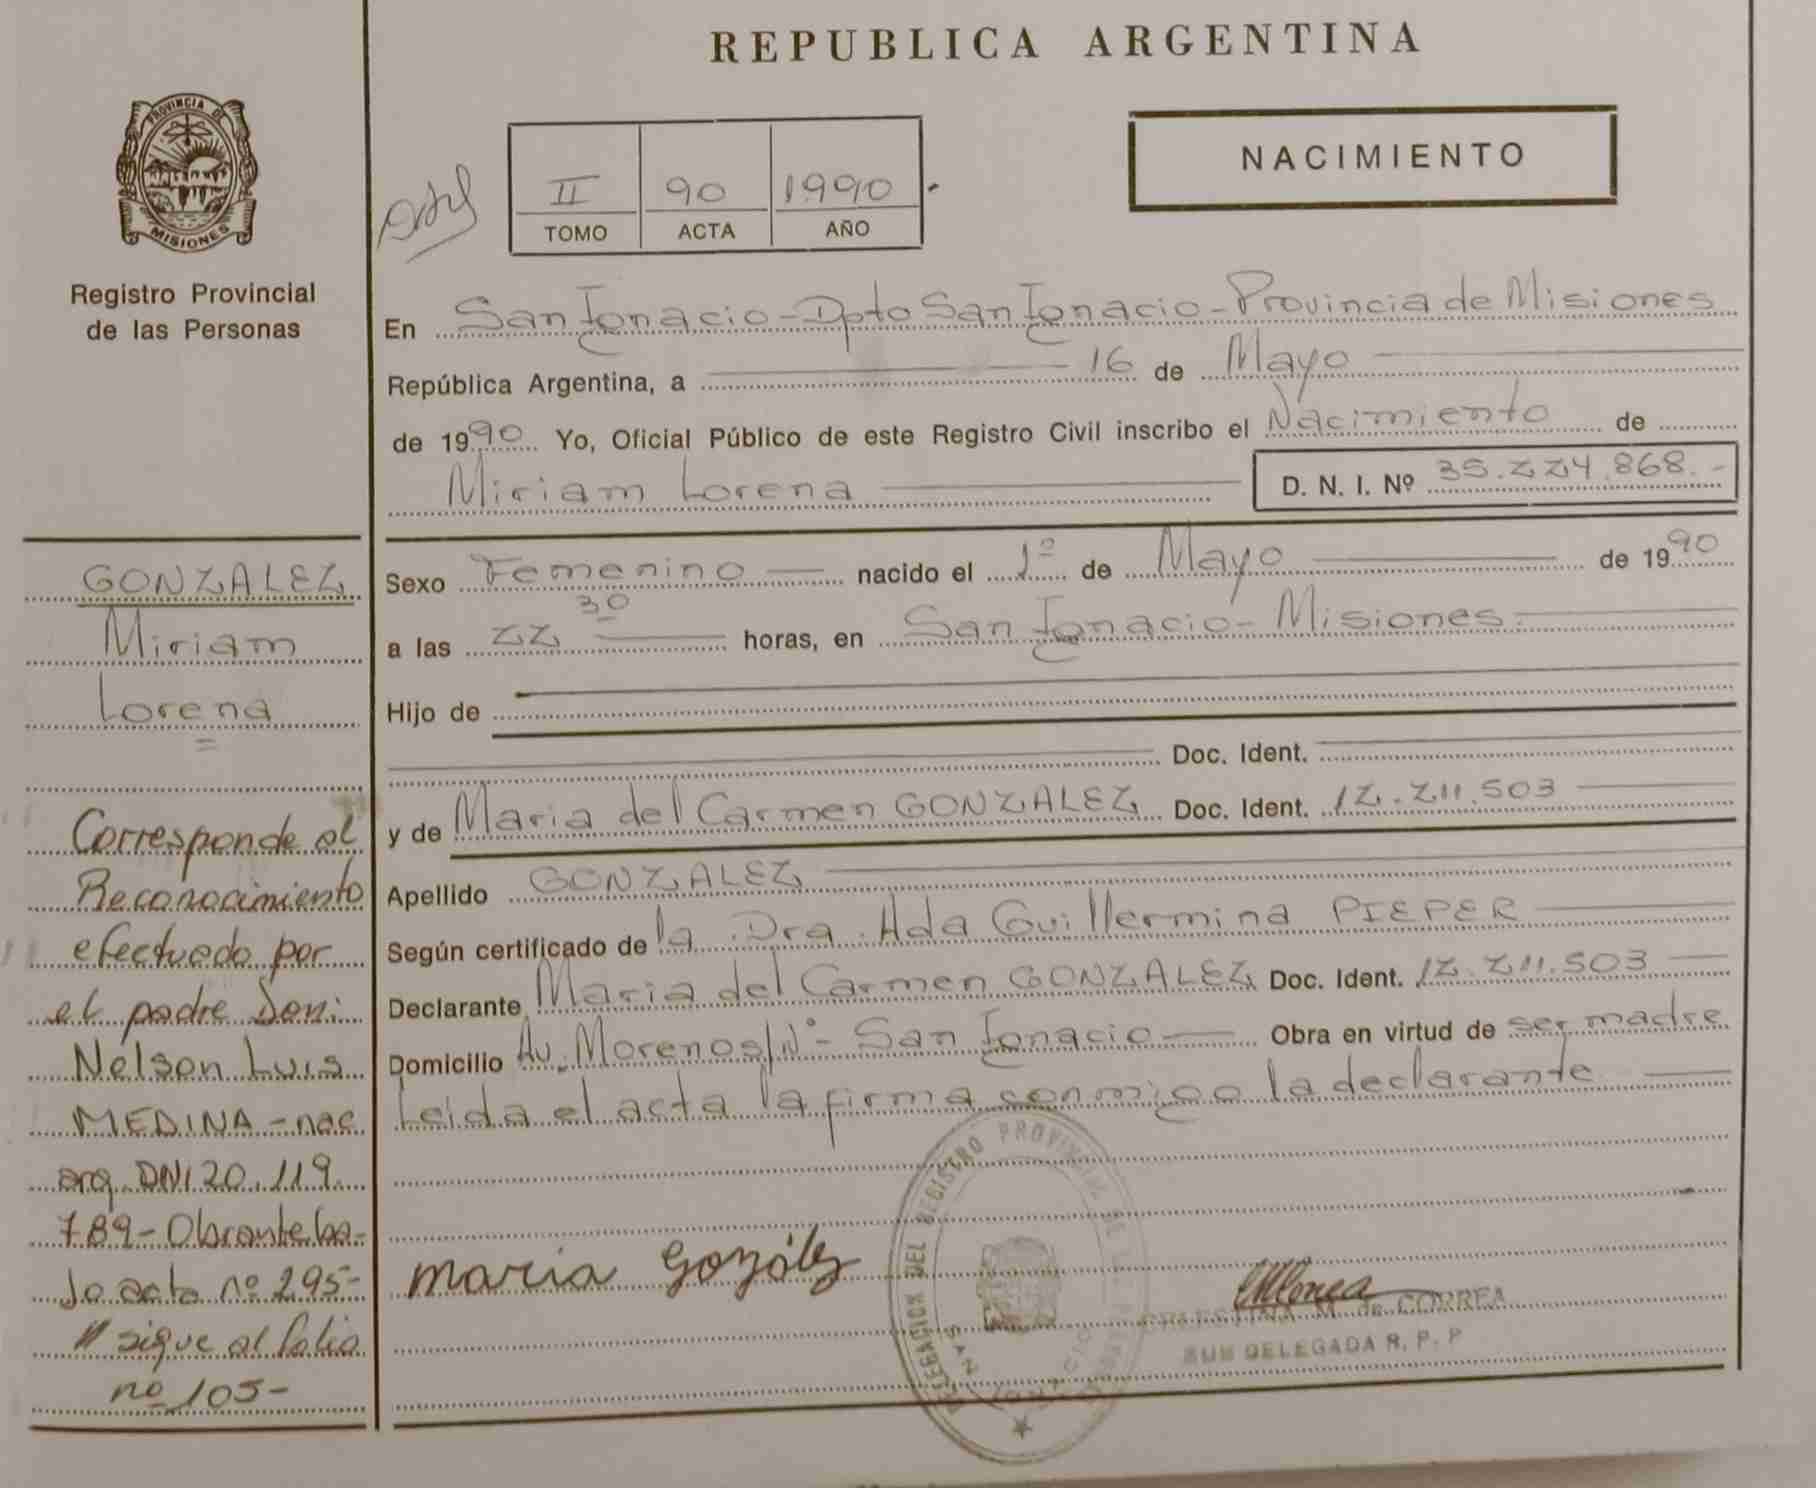 REPUBLICA ARGENTINA
PROVINCIA DE
MISIONES
Registro Provincial
de las Personas
II 90 1990
TOMO ACTA AÑO
NACIMIENTO
En San Ignacio - Dpto San Ignacio - Provincia de Misiones
República Argentina, a 16 de Mayo
de 1990 Yo, Oficial Público de este Registro Civil inscribo el Nacimiento de
Miriam Lorena D. N. I. Nº 35.224.868.-
Sexo Femenino nacido el 1º de Mayo de 1990
a las 22 30 horas, en San Ignacio - Misiones.
Hijo de
Doc. Ident.
y de Maria del Carmen GONZALEZ Doc. Ident. 12.211.503
Apellido GONZALEZ
Según certificado de la Dra. Ada Guillermina PIEPER
Declarante Maria del Carmen GONZALEZ Doc. Ident. 12.211.503
Domicilio Av. Moreno s/Nº - San Ignacio Obra en virtud de ser madre
Leida el acta la firma conmigo la declarante
GONZALEZ
Miriam
Lorena
=
Corresponde al
Reconocimiento
efectuado por
el padre Don:
Nelson Luis
MEDINA - nac.
arg. DNI 20.119.
789 - Obrante ba-
jo acta nº 295-
// sigue al folio
nº 105-
maria Gozález
DELEGACION DEL REGISTRO PROVINCIAL DE
SAN IGNACIO
CELESTINA M. de CORREA
SUB DELEGADA R. P. P